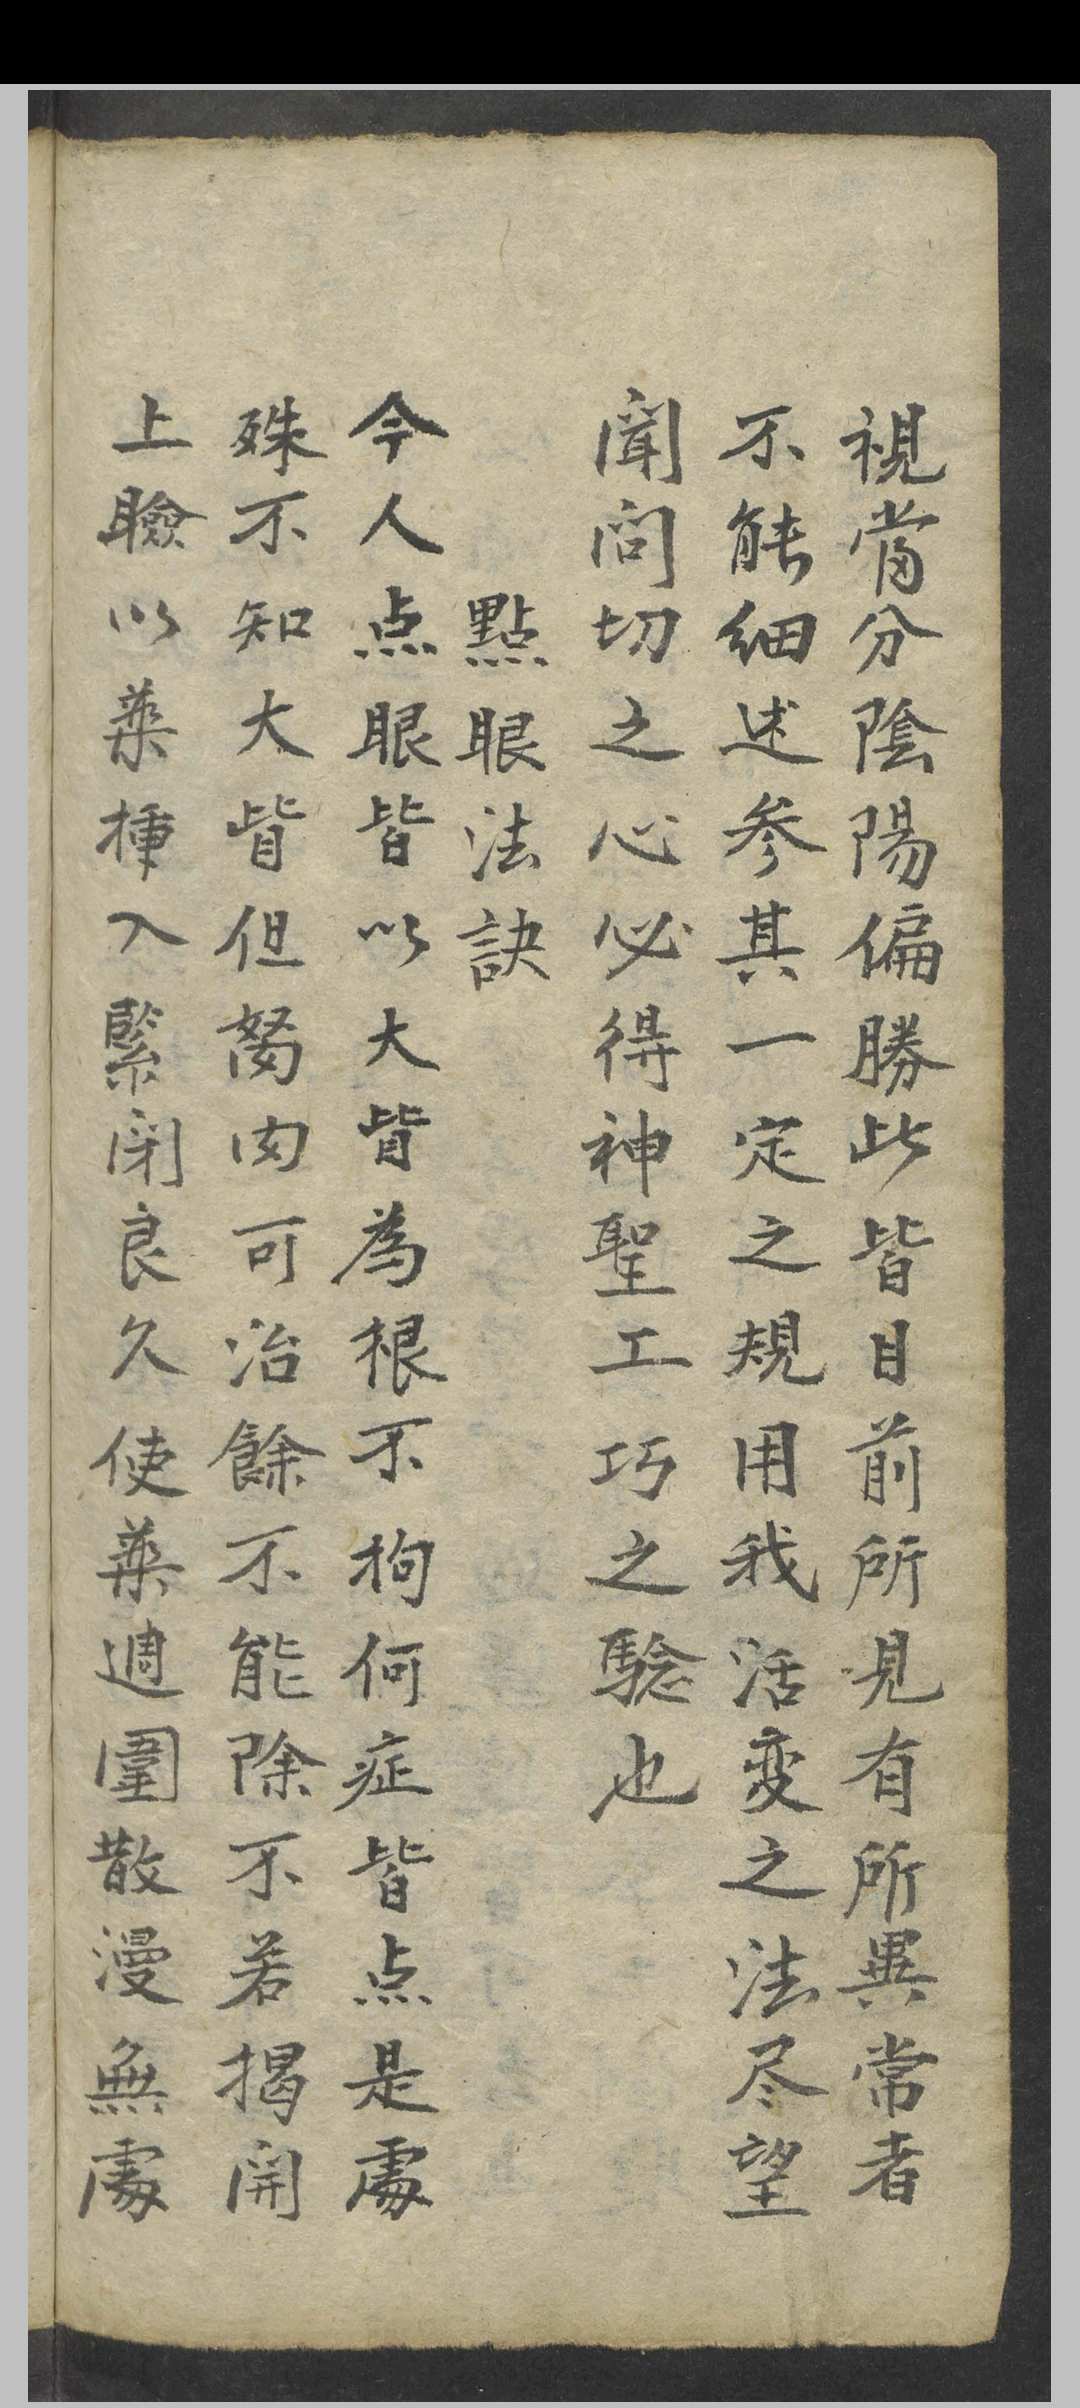 視當分陰陽偏勝此皆目前所見有所異常者
不能细述参其一定之規用我活变之法尽望
聞問切之心必得神聖工巧之驗也
點眼法訣
今人点眼皆以大眥為根不拘何症皆点是處
殊不知大眥但胬肉可治餘不能除不若揭開
上瞼以藥挿入緊闭良久使藥週圍散漫無處